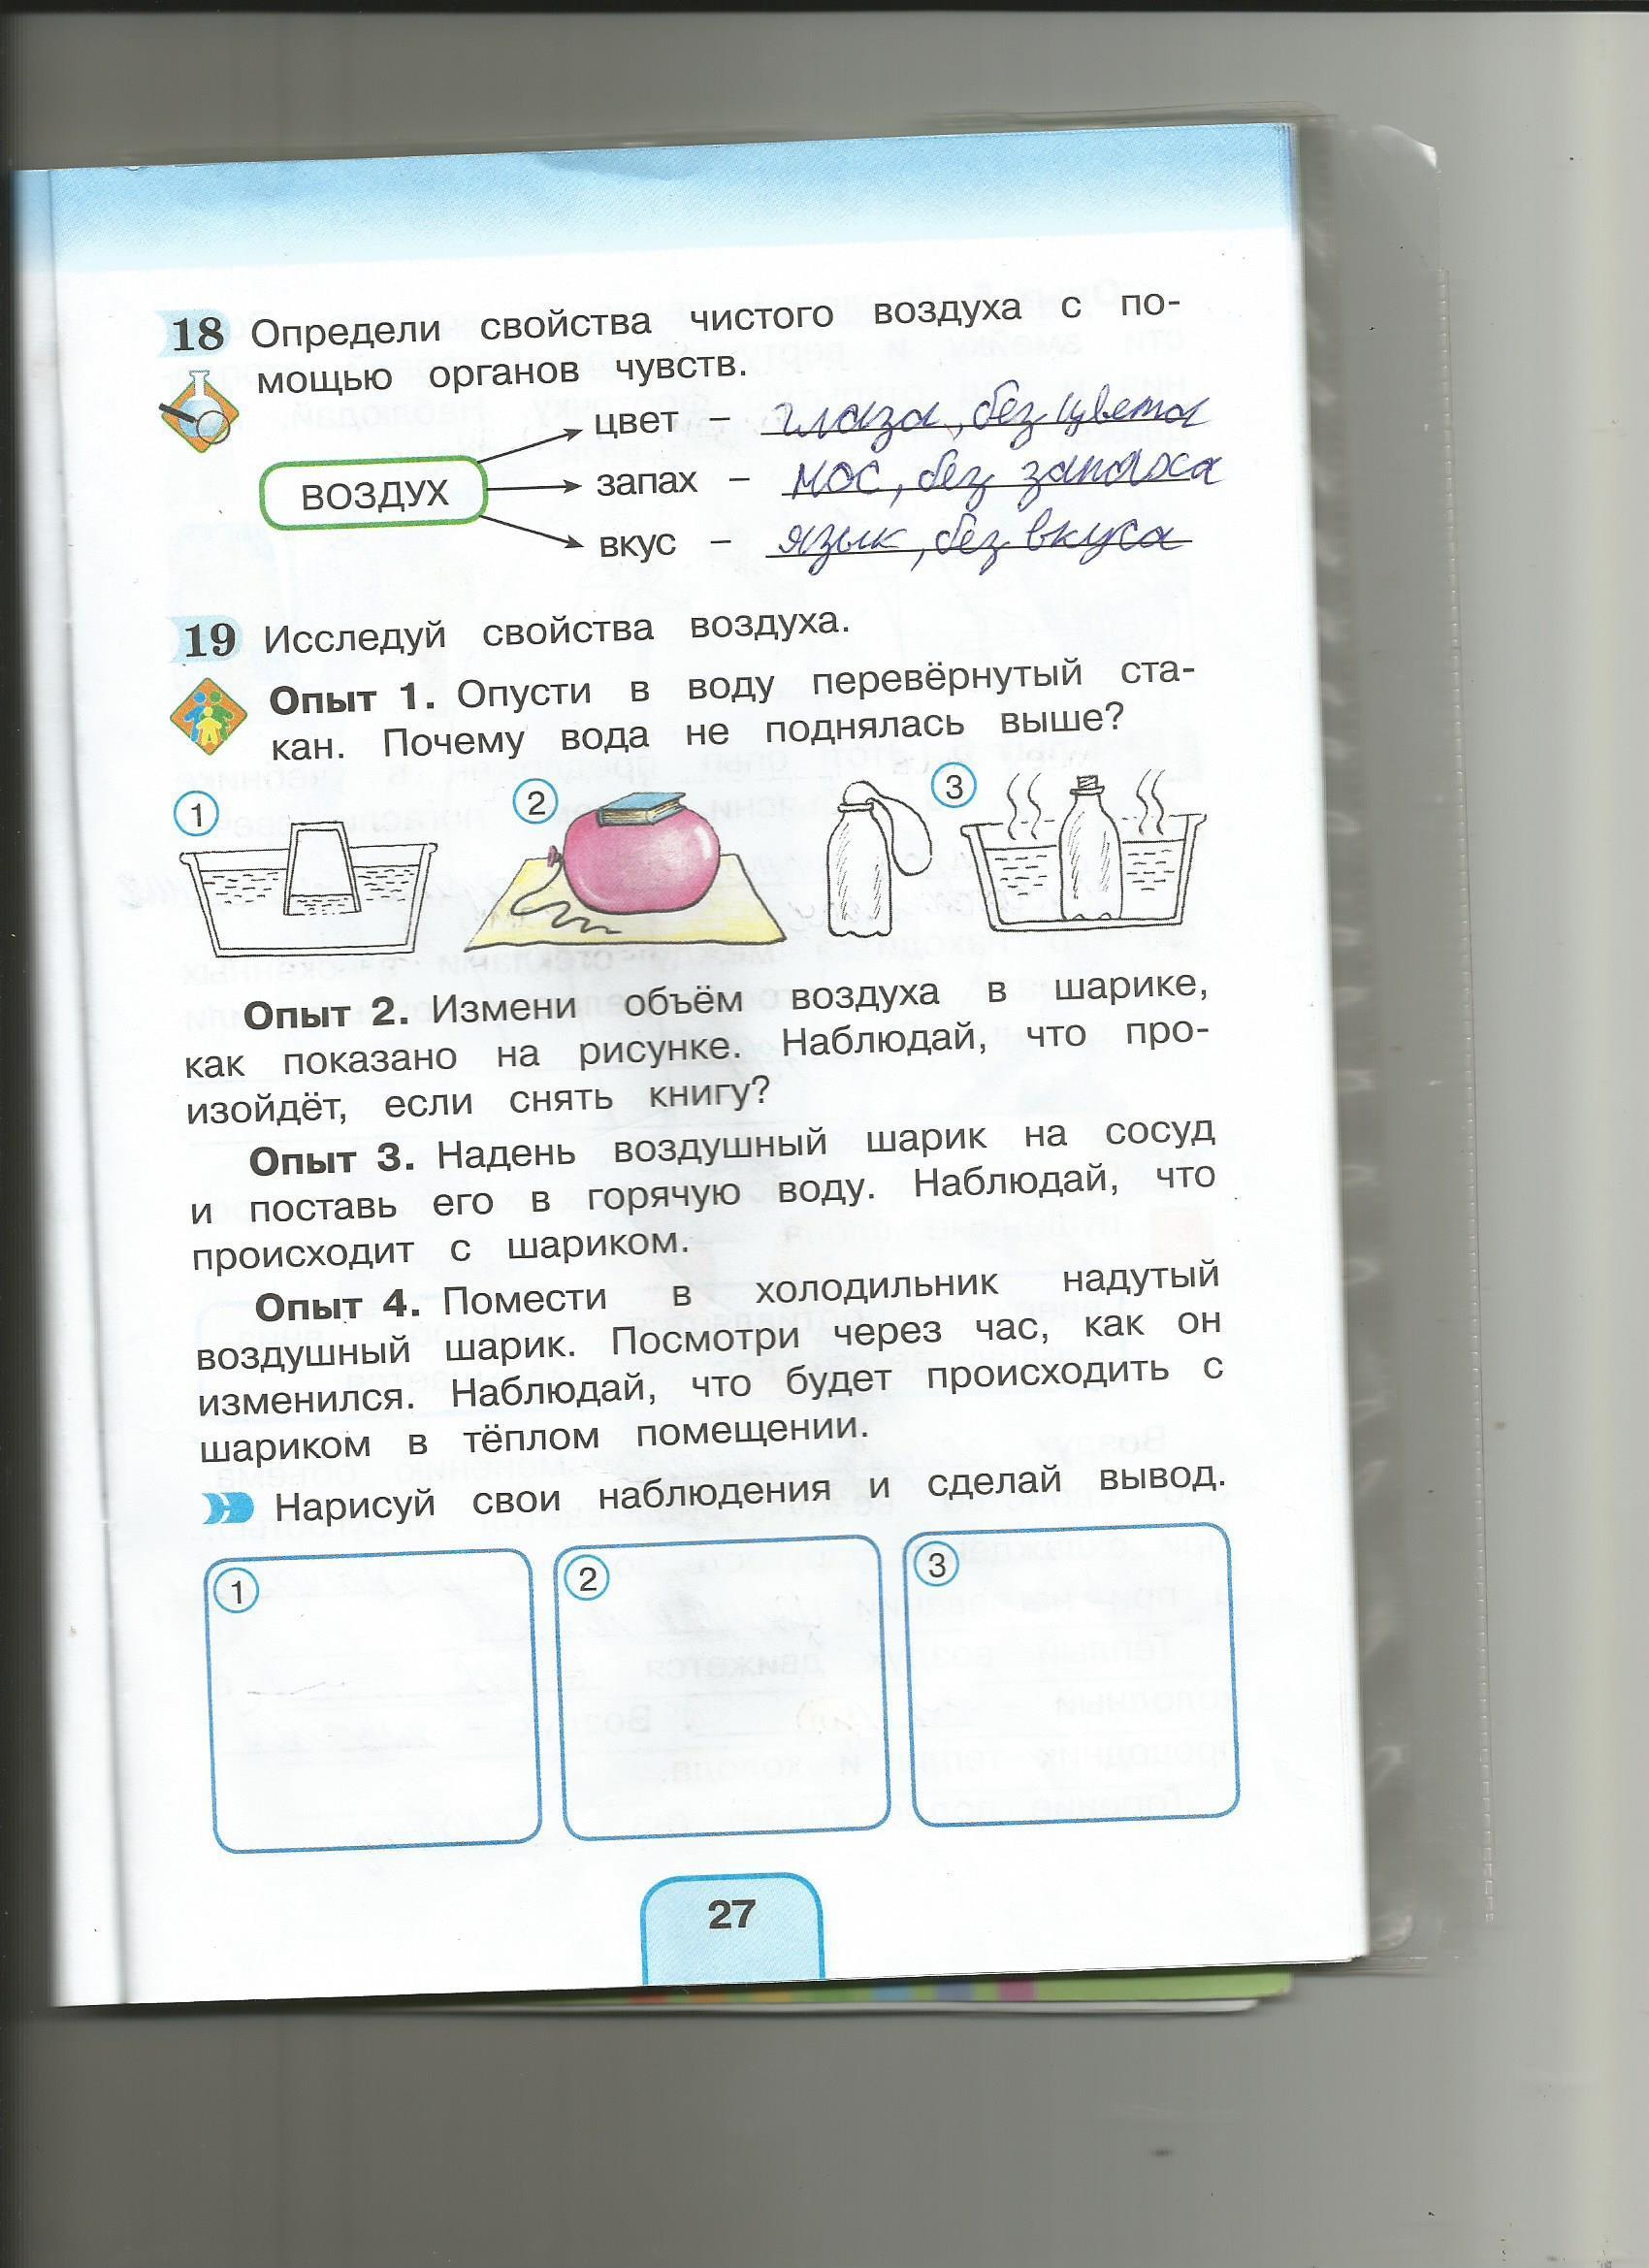 18 Определи свойства чистого воздуха с по-
мощью органов чувств.
цвет – глаза, без цвета
ВОЗДУХ запах – нос, без запаха
вкус – язык, без вкуса
19 Исследуй свойства воздуха.
Опыт 1. Опусти в воду перевёрнутый ста-
кан. Почему вода не поднялась выше?
1 2 3
Опыт 2. Измени объём воздуха в шарике,
как показано на рисунке. Наблюдай, что про-
изойдёт, если снять книгу?
Опыт 3. Надень воздушный шарик на сосуд
и поставь его в горячую воду. Наблюдай, что
происходит с шариком.
Опыт 4. Помести в холодильник надутый
воздушный шарик. Посмотри через час, как он
изменился. Наблюдай, что будет происходить с
шариком в тёплом помещении.
Нарисуй свои наблюдения и сделай вывод.
1 2 3
27